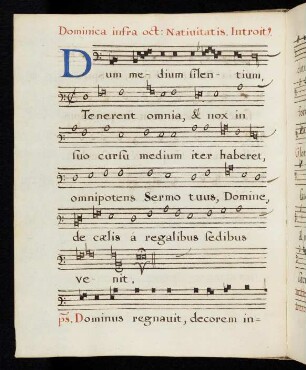 Dominica infra oct: Natiuitatis. Introit9.
Dum me- dium silen- tium,
Tenerent omnia, & nox in
suo cursu medium iter haberet,
omnipotens Sermo tuus, Domine,
de cælis a regalibus sedibus
ve- nit,
ps. Dominus regnauit, decorem in=